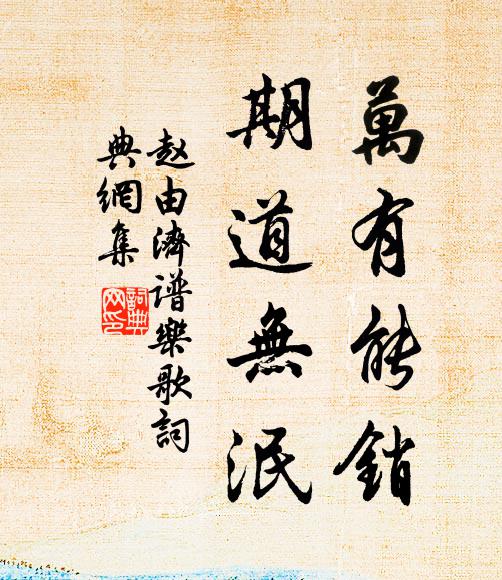 萬有能銷
期道無泯
赵由濟谱樂歌詞
典網集
詞典
网印